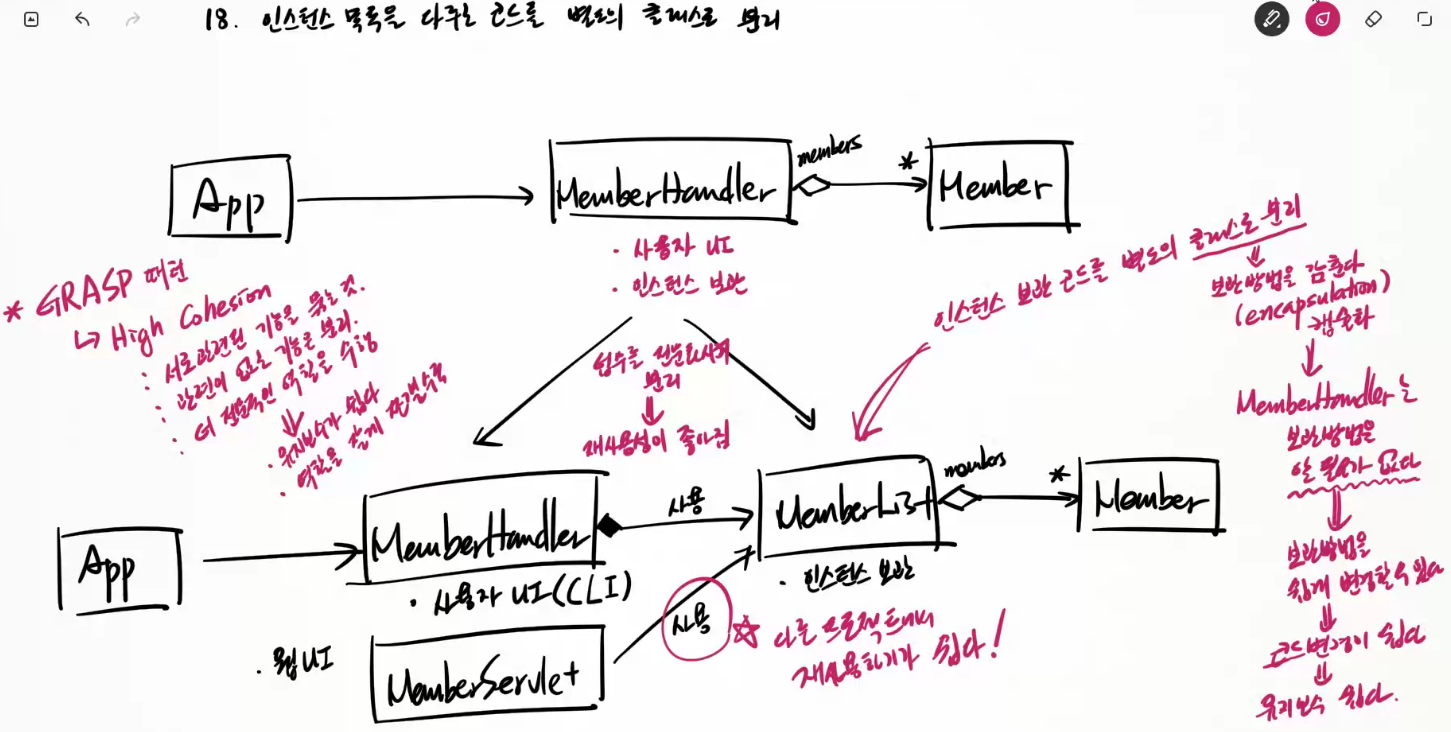 18. 인스턴스 목록을 다루는 코드를 별도의 클래스로 분리
App
MemberHandler
members
*
Member
· 사용자 UI
· 인스턴스 보관
* GRASP 패턴
↳ High Cohesion
: 서로 관련된 기능을 묶는 것.
: 관련이 없는 기능은 분리.
. 더 전문적인 역할을 수행
⇓
· 유지보수가 쉽다
· 역할을 쉽게 파악할수록
분리
⇓
재사용성이 좋아짐
인스턴스 보관 코드를 별도의 클래스로 분리
⇓
보관방법을 감춘다
(encapsulation)
캡슐화
↓
MemberHandler는
보관방법을
알 필요가 없다
⇓
보관방법을
쉽게 변경할 수 있다
⇓
코드변경이 쉽다
⇓
유지보수 쉽다.
App
MemberHandler
사용
MemberList
members
*
Member
· 사용자 UI(CLI)
· 인스턴스 보관
· 웹UI
MemberServlet
사용
☆ 다른 프로젝트에서
재사용하기가 쉽다!